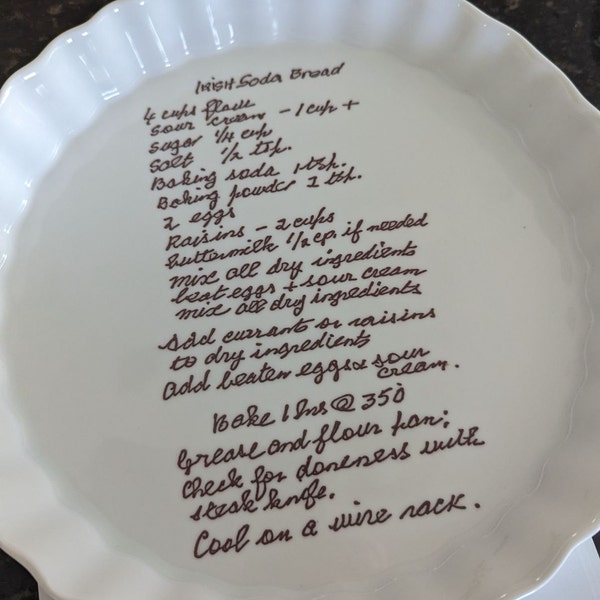 Irish Soda Bread
4 cups flour
sour cream - 1 cup +
sugar 1/4 cup
Salt 1/2 tsp.
Baking soda 1 tsp.
Baking powder 1 tsp.
2 eggs
Raisins - 2 cups
buttermilk 1/2 cp. if needed
mix all dry ingredients
beat eggs + sour cream
mix all dry ingredients
add currants or raisins
to dry ingredients
add beaten eggs & sour
cream.
Bake 1 hr @ 350°
Grease and flour pan;
check for doneness with
steak knife.
Cool on a wire rack.